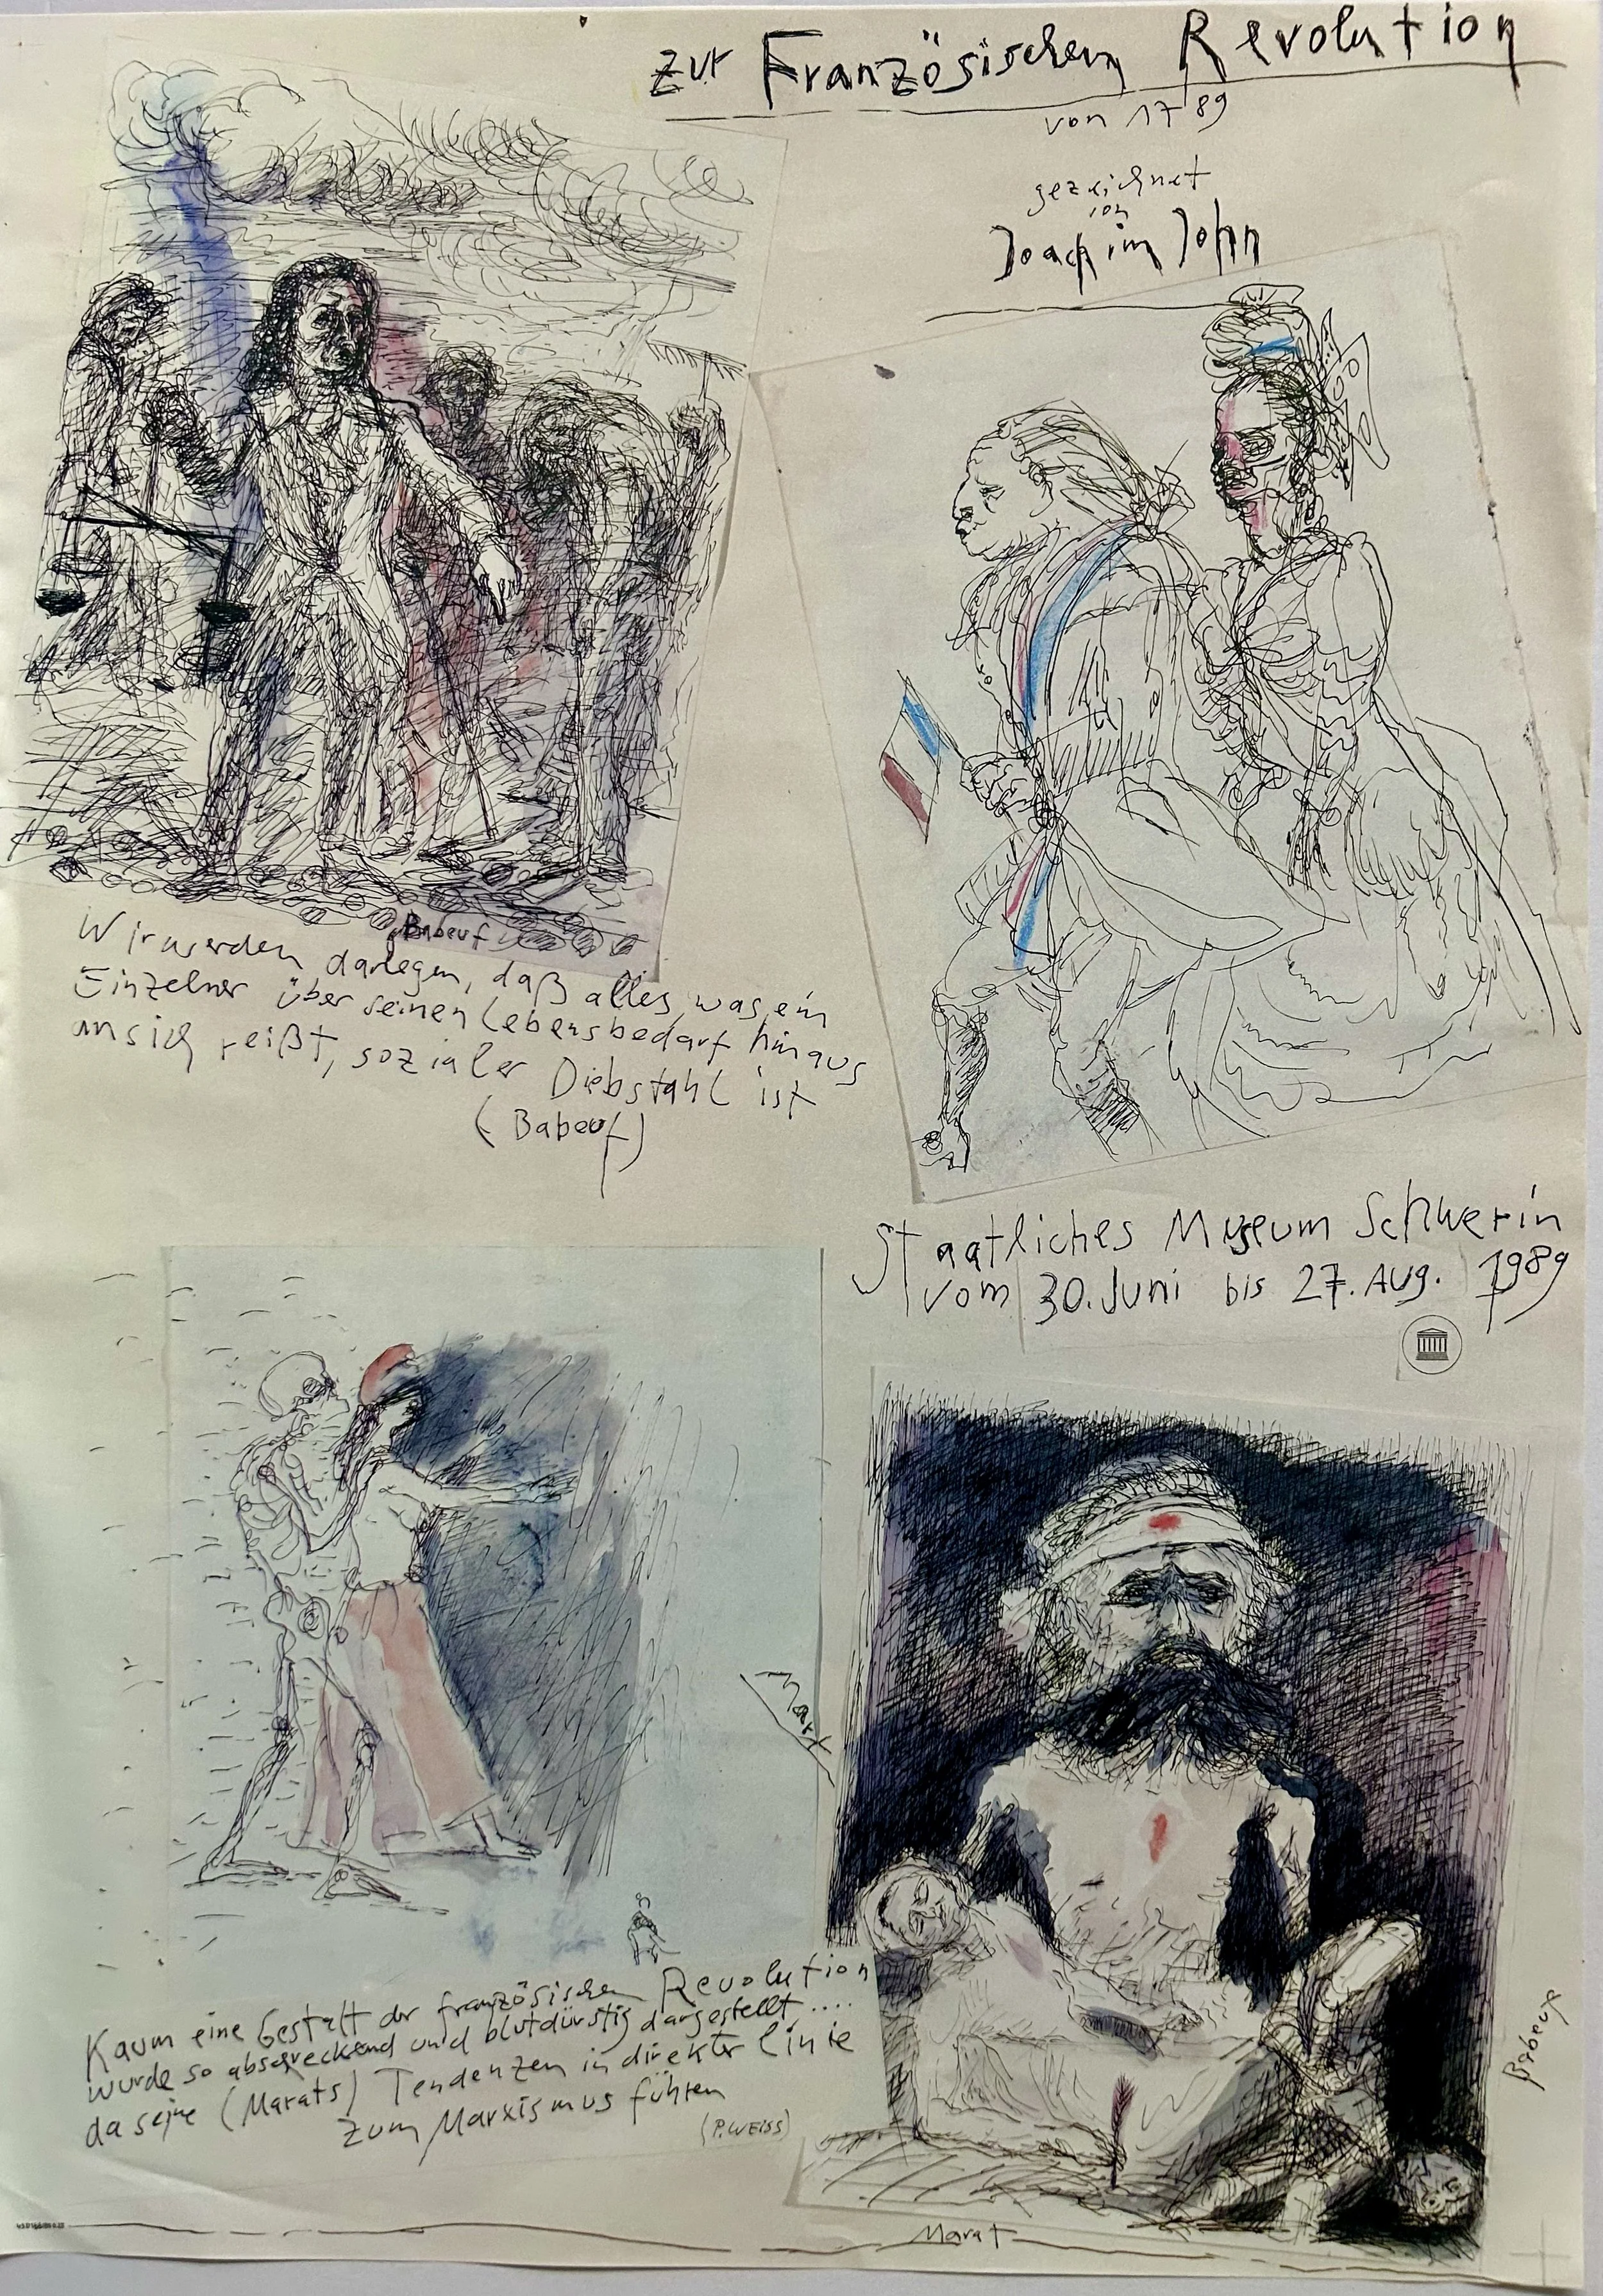 zur Französischen Revolution
von 1789
gezeichnet
von
Joachim John
Babeuf
Wir werden darlegen, daß alles, was ein
Einzelner über seinen Lebensbedarf hinaus
an sich reißt, sozialer Diebstahl ist
(Babeuf)
Staatliches Museum Schwerin
vom 30. Juni bis 27. Aug. 1989
Marx
Kaum eine Gestalt der französischen Revolution
wurde so abschreckend und blutdürstig dargestellt....
da seine (Marats) Tendenzen in direkter Linie
zum Marxismus führen
(P. WEISS)
Babeuf
Marat